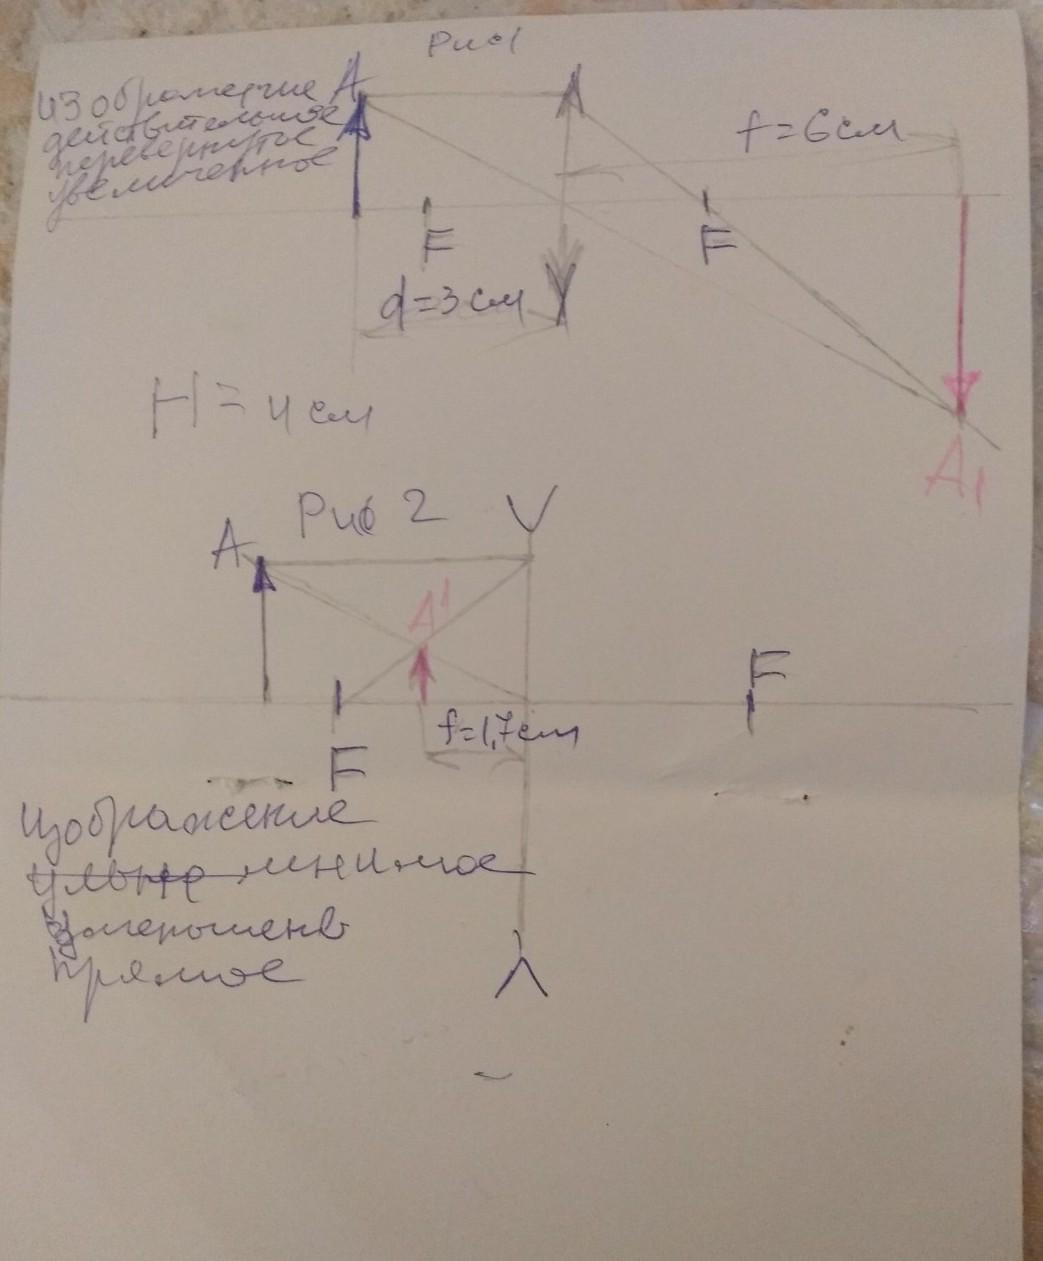 Рис1
Изображение A
действительное
перевернутое
увеличенное
f=6см
F
F
d=3см
H=4см
A1
Рис 2
A
A1
F
f=1,7см
F
Изображение
мнимое
прямое